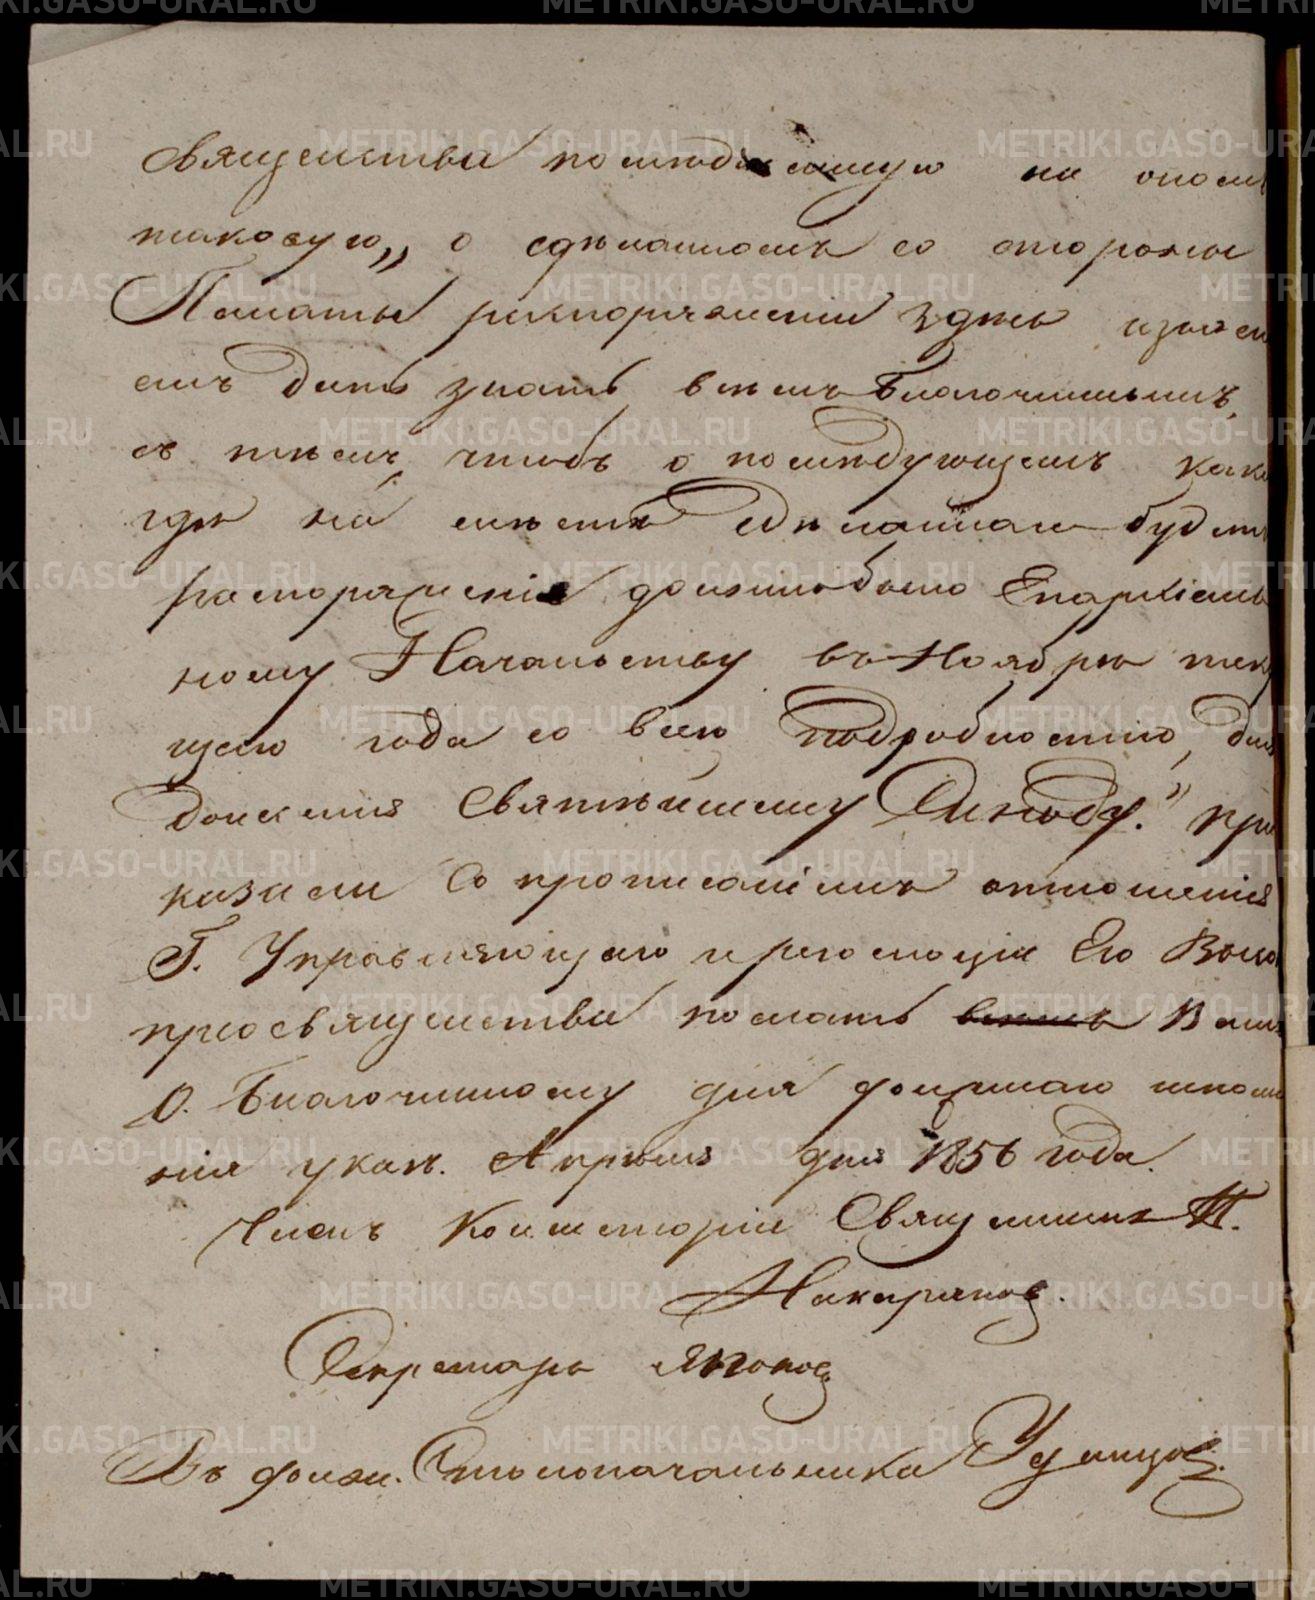 священства последовавшую на оном
таковую„ о сделанномъ со стороны
Палаты распоряженiи здѣсь изложен
емъ дать знать всѣмъ Благочиннымъ,
съ тѣмъ, чтобъ о послѣдующемъ какое
гдѣ на мѣстѣ сдѣланное будетъ
распоряженiе донесено было Епархiаль
ному Начальству въ Ноябрѣ теку
щаго года со всею подробностiю, для
донесенiя Святѣйшему Синоду." при
казали Со прописанiемъ отношенiя
Г. Управляющаго и резолюцiи Его Высо
преосвященства послать всѣмъ Вамъ
О. Благочинному для должнаго исполне
нiя указъ. Апрѣля дня 1856 года.
Членъ Консисторiи Священникъ П.
Накаряковъ.
Секретарь Яponoвъ
Въ должн. Столоначальника Удинцовъ.
METRIKI.GASO-URAL.RU